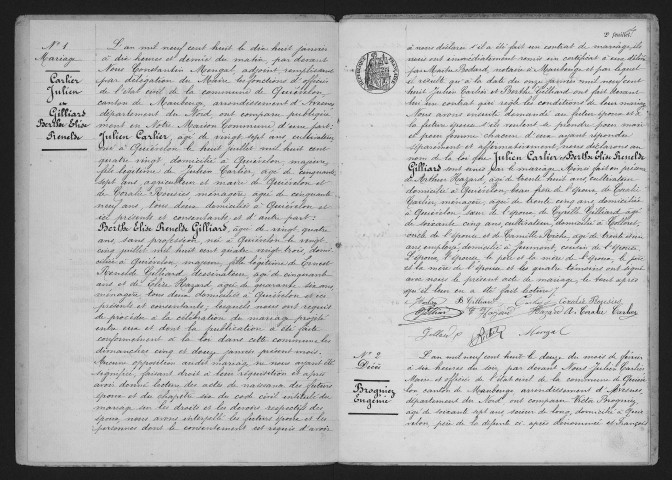 N° 1
Mariage
Carlier
Julien
et
Gilliard
Berthe Elise
Renelde
L'an mil neuf cent huit le dix huit janvier
à dix heures et demie du matin, par devant
Nous Constantin Mengal, adjoint, remplissant
par délégation du Maire les fonctions d'officier
de l'état civil de la commune de Quiévelon,
canton de Maubeuge, arrondissement d'Avesnes
département du Nord, ont comparu publiquement
en Notre Maison Commune d'une part:
Julien Carlier, âgé de vingt sept ans cultivateur
né à Quiévelon le huit juillet mil huit cent
quatre vingt domicilié à Quiévelon majeur,
fils légitime de Julien Carlier, âgé de cinquante
sept ans, agriculteur et maire de Quiévelon et
de Coralie ménagère, âgée de cinquante
ans, tous deux domiciliés à Quiévelon et
ici présents et consentants et d'autre part:
Berthe Elise Renelde Gilliard, âgée de vingt quatre
ans sans profession, née à Quiévelon le vingt
cinq juillet mil huit cent quatre vingt trois domiciliée
à Quiévelon, majeure, fille légitime de Ernest
Renelde Gilliard, dessinateur, âgé de cinquante
ans et de Elise Hazard, âgée de quarante six ans
ménagère, tous deux domiciliés à Quiévelon, et ici
présents et consentants, lesquels nous ont requis
de procéder à la célébration du mariage projeté
entre eux et dont la publication a été faite
conformément à la loi dans cette commune les
dimanches cinq et douze janvier présent mois.
Aucune opposition audit mariage ne nous ayant été
signifiée, faisant droit à leur réquisition et après
avoir donné lecture des actes de naissance des futurs
époux et du chapitre six du code civil intitulé du
mariage sur les droits et les devoirs respectifs des
époux nous avons interpellé les futurs époux et les
personnes dont le consentement est requis d'avoir
2e feuillet
à nous déclarer s'il a été fait un contrat de mariage, ils
nous ont remis un certificat à eux délivré
par Maître notaire à Maubeuge et par lequel
il résulte qu'à la date du onze janvier mil neuf cent
huit Julien Carlier et Berthe Gilliard ont fait devant
lui un contrat qui règle les conditions de leur mariage
Nous avons ensuite demandé au futur époux et à
la future épouse s'ils veulent se prendre pour mari
et pour femme chacun d'eux ayant répondu
séparément et affirmativement, nous déclarons au
nom de la loi que Julien Carlier et Berthe Elise Renelde
Gilliard sont unis par le mariage. Avons fait en présence
de Arthur Hazard, âgé de trente ans, cultivateur
domicilié à Quiévelon, de l'époux, de Coralie
Carlier ménagère, âgée de trente cinq ans, domiciliée
à Quiévelon, sœur de l'époux, de Cyrille Gilliard, âgé
de soixante cinq ans, cultivateur, domicilié à
oncle de l'épouse et de Camille âgé de trente
ans employé, domicilié à Jeumont, cousin de l'épouse.
L'époux, l'épouse, le père et la mère de l'époux, le père
et la mère de l'épouse et les quatre témoins ont signé
avec nous le présent acte de mariage, le tout après
qu'il leur en a été fait lecture
B Gilliard
Gilliard E Hazard Hazard A. Coralie Carlier
Gilliard Mengal
N° 2
Décès
Brognier
Eugénie
L'an mil neuf cent huit le douze du mois de février
à six heures du soir, par devant Nous Julien Carlier
Maire et officier de l'état civil de la commune de Quiévelon
canton de Maubeuge arrondissement d'Avesnes
département du Nord, ont comparu Victor Brognier,
âgé de soixante sept ans domicilié à Quiévelon,
père de la défunte ci après dénommée et François